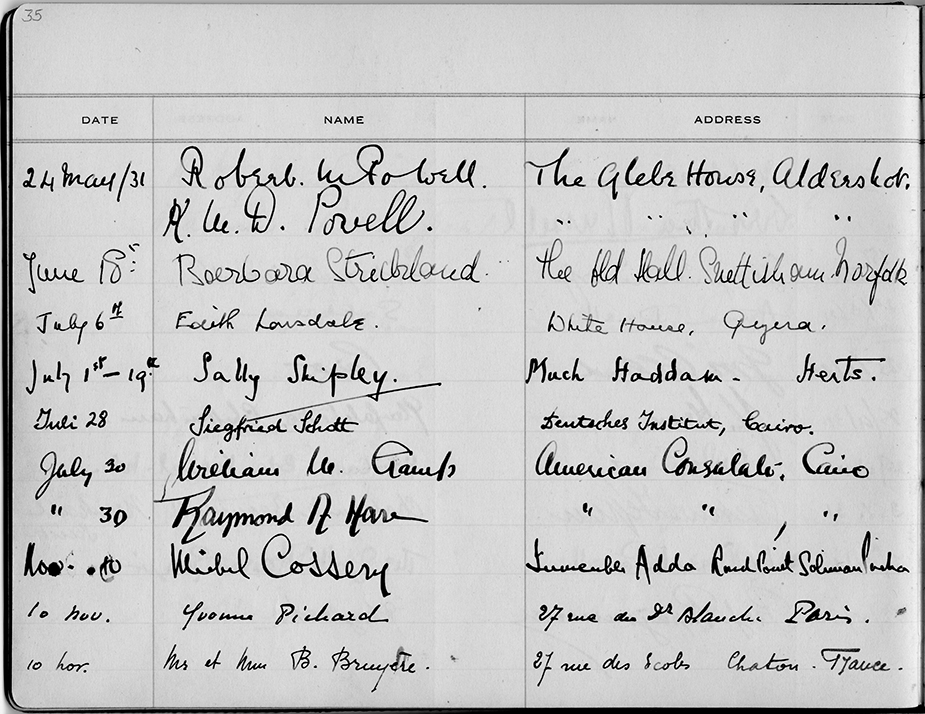 35
DATE NAME ADDRESS
24 May/31 Robert. W Powell. The Glebe House, Aldershot.
K. M. D. Powell. " " " "
June 18th Barbara Strickland. The Old Hall. Snettisham. Norfolk
July 6th Edith Lonsdale. White House, Gezira.
July 1st – 19th Sally Shipley. Much Haddam - Herts.
Juli 28 Siegfried Schott Deutsches Institut, Cairo.
July 30 William M. American Consulate, Cairo
" 30 Raymond A Hare " " "
Nov. 10 Michel Cossery Immeuble Adda Rond Point Soliman Pacha
10 nov. Yvonne Pichard 27 rue du Dr Blanche Paris.
10 nov. Mr et Mme B. Bruyère. 27 rue des Ecoles Chatou. France.